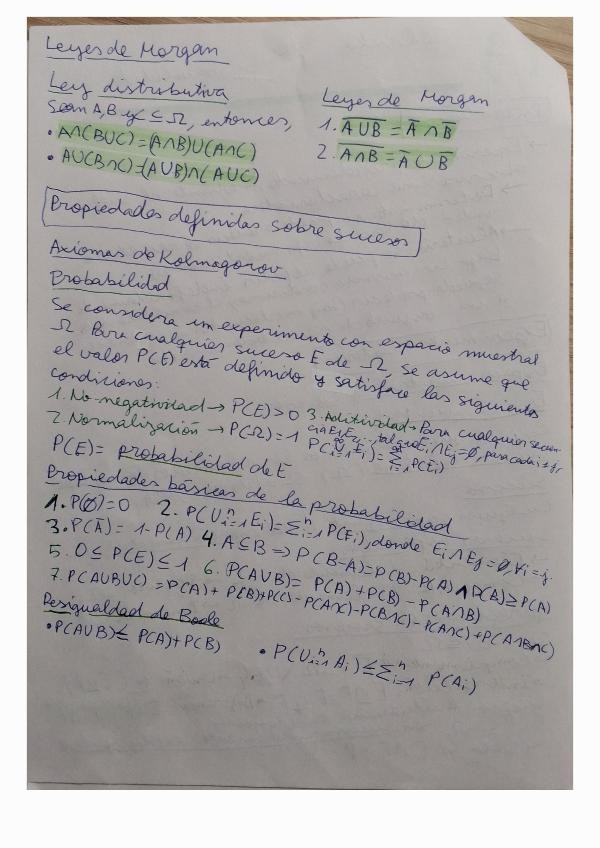 Leyes de Morgan
Ley distributiva
Sean A, B y C ⊆ Ω, entonces,
• A∩(B∪C)=(A∩B)∪(A∩C)
• A∪(B∩C)=(A∪B)∩(A∪C)
Leyes de Morgan
1. A̅∪̅B̅ = A̅ ∩ B̅
2. A̅∩̅B̅ = A̅ ∪ B̅
Propiedades definidas sobre sucesos
Axiomas de Kolmagorov
Probabilidad
Se considera un experimento con espacio muestral
Ω. Para cualquier suceso E de Ω, se asume que
el valor P(E) está definido y satisface las siguientes
condiciones:
1. No negatividad → P(E)>0
2. Normalización → P(Ω)=1
3. Aditividad → Para cualquier secuen-
cia E₁, E₂..., tal que Ei∩Ej=∅, para cada i≠j,
P(∪∞i=1 Ei)=∑∞i=1 P(Ei)
P(E)= probabilidad de E
Propiedades básicas de la probabilidad
1. P(∅)=0 2. P(∪ni=1 Ei)=∑ni=1 P(Ei), donde Ei∩Ej=∅, ∀i=j.
3. P(A̅)= 1-P(A) 4. A⊆B ⇒ P(B-A)=P(B)-P(A) ∧ P(B)≥P(A)
5. 0≤ P(E)≤1 6. P(A∪B)= P(A)+P(B) - P(A∩B)
7. P(A∪B∪C) =P(A)+ P(B)+P(C)- P(A∩C)-P(B∩C)-P(A∩C)+P(A∩B∩C)
Desigualdad de Boole
• P(A∪B)≤ P(A)+P(B)
• P(∪ni=1 Ai)≤∑ni=1 P(Ai)